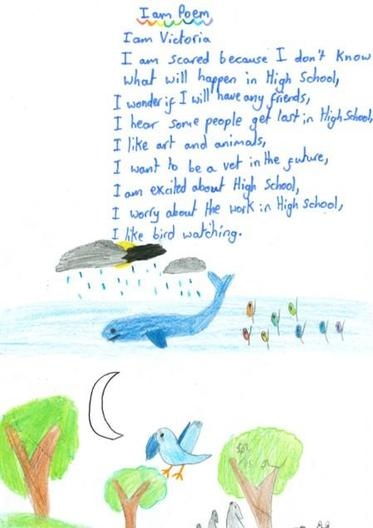 I am Poem
I am Victoria
I am scared because I don't know
what will happen in High School,
I wonder if I will have any friends,
I hear some people get lost in High School,
I like art and animals,
I want to be a vet in the future,
I am excited about High School,
I worry about the work in High School,
I like bird watching.